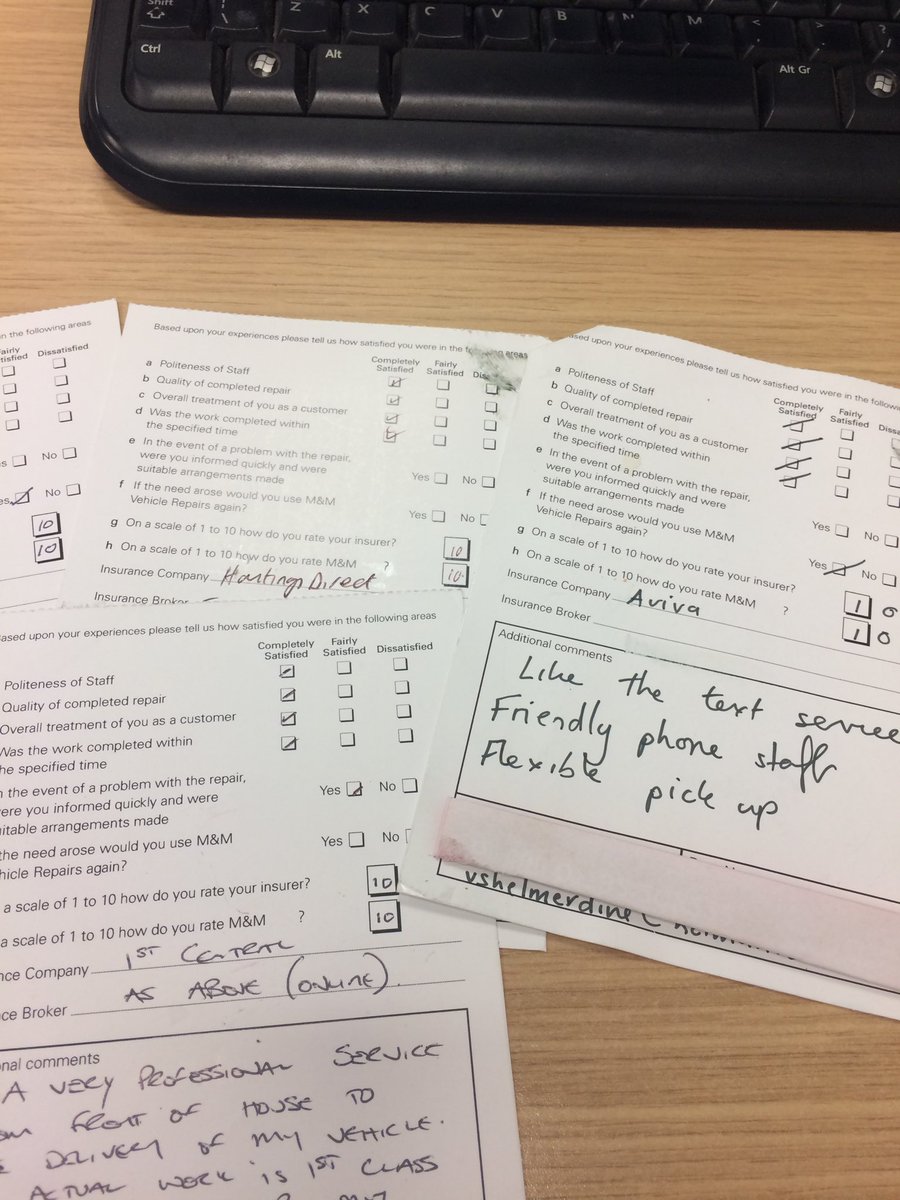 Shift
Z
X
C
V
B
N
M
<
>
?
/
Ctrl
Alt
Alt Gr
in the following areas
Fairly
Satisfied Dissatisfied
No
No
10
10
Based upon your experiences please tell us how satisfied you were in the following areas
Completely
Satisfied
Fairly
Satisfied
a Politeness of Staff
b Quality of completed repair
c Overall treatment of you as a customer
d Was the work completed within
the specified time
e In the event of a problem with the repair,
were you informed quickly and were
suitable arrangements made
Yes No
f If the need arose would you use M&M
Vehicle Repairs again?
Yes No
g On a scale of 1 to 10 how do you rate your insurer?
10
h On a scale of 1 to 10 how do you rate M&M ?
10
Insurance Company Hastings Direct
Insurance Broker
Based upon your experiences please tell us how satisfied you were in the following
Completely
Satisfied
Fairly
Satisfied
a Politeness of Staff
b Quality of completed repair
c Overall treatment of you as a customer
d Was the work completed within
the specified time
e In the event of a problem with the repair,
were you informed quickly and were
suitable arrangements made
Yes No
f If the need arose would you use M&M
Vehicle Repairs again?
Yes No
g On a scale of 1 to 10 how do you rate your insurer?
10
h On a scale of 1 to 10 how do you rate M&M ?
10
Insurance Company Aviva
Insurance Broker
Additional comments
Like the text service
Friendly phone staff
Flexible pick up
vshelmerdine
Based upon your experiences please tell us how satisfied you were in the following areas
Completely
Satisfied
Fairly
Satisfied
Dissatisfied
Politeness of Staff
Quality of completed repair
Overall treatment of you as a customer
Was the work completed within
the specified time
in the event of a problem with the repair,
were you informed quickly and were
suitable arrangements made
Yes No
the need arose would you use M&M
Vehicle Repairs again?
Yes No
a scale of 1 to 10 how do you rate your insurer?
10
a scale of 1 to 10 how do you rate M&M ?
10
nce Company 1ST CENTRAL
ce Broker AS ABOVE (ONLINE).
nal comments
A VERY PROFESSIONAL SERVICE
FRONT OF HOUSE TO
DELIVERY OF MY VEHICLE.
ACTUAL WORK IS 1ST CLASS